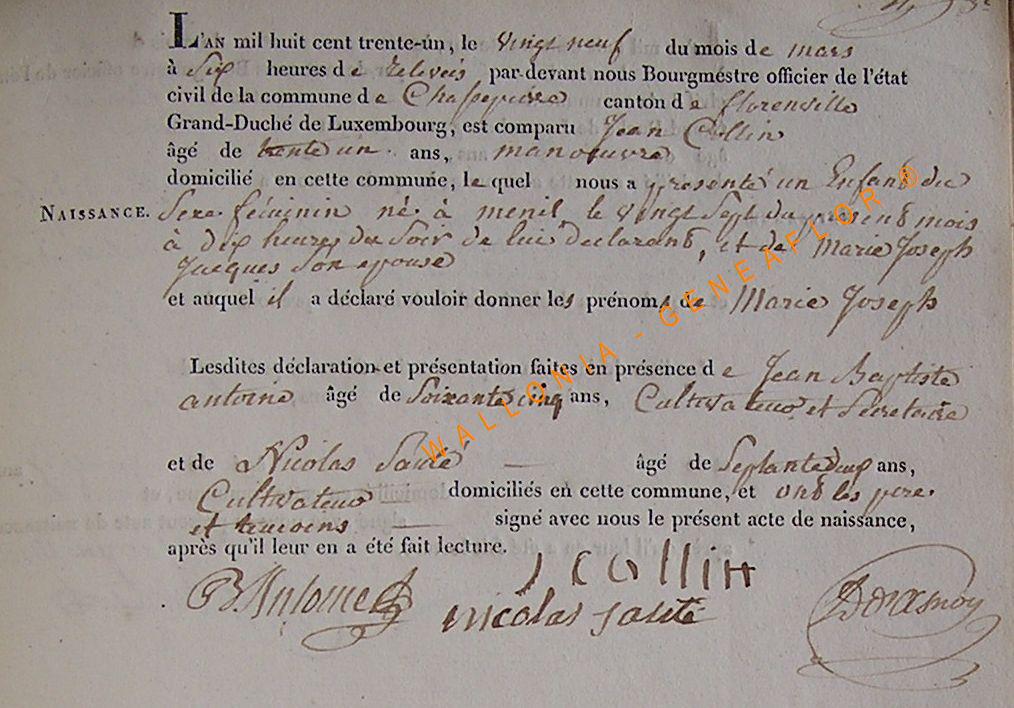 L'AN mil huit cent trente-un, le vingt neuf du mois de mars
à six heures de relevée par-devant nous Bourgmestre officier de l'état
civil de la commune de Chassepierre canton de florenville
Grand-Duché de Luxembourg, est comparu Jean Collin
âgé de trente un ans, manoeuvre
domicilié en cette commune, lequel nous a presenté un Enfant du
NAISSANCE. Sexe féminin né à menil le vingt Sept du present mois
à dix heures du Soir de lui declarant, et de Marie Joseph
Jacques Son epouse
et auquel il a déclaré vouloir donner les prénoms de Marie Joseph
Lesdites déclaration et présentation faites en présence de Jean Baptiste
antoine âgé de Soixante cinq ans, Cultivateur et Secretaire
et de Nicolas Sauté âgé de Septante ans,
Cultivateur domiciliés en cette commune, et ont les pere
et temoins signé avec nous le présent acte de naissance,
après qu'il leur en a été fait lecture.
J Collin
B Antoine
nicolas sauté
WALLONIA - GENEAFLOR ®